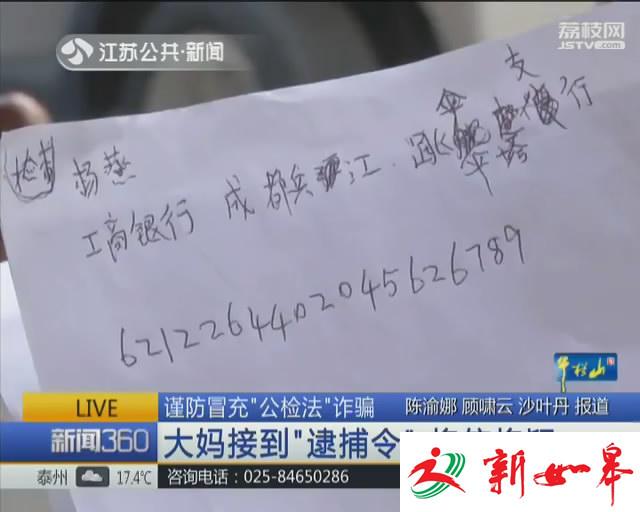 江苏公共·新闻
荔枝网
JSTV.com
伞 支
检 杨燕 成都 江. 跳 行
工商银行 伞塔
6212264402045626789
LIVE
谨防冒充"公检法"诈骗
陈渝娜 顾啸云 沙叶丹 报道
新闻360
大妈接到"逮捕令"
泰州 17.4℃ 咨询电话：025-84650286
新如皋